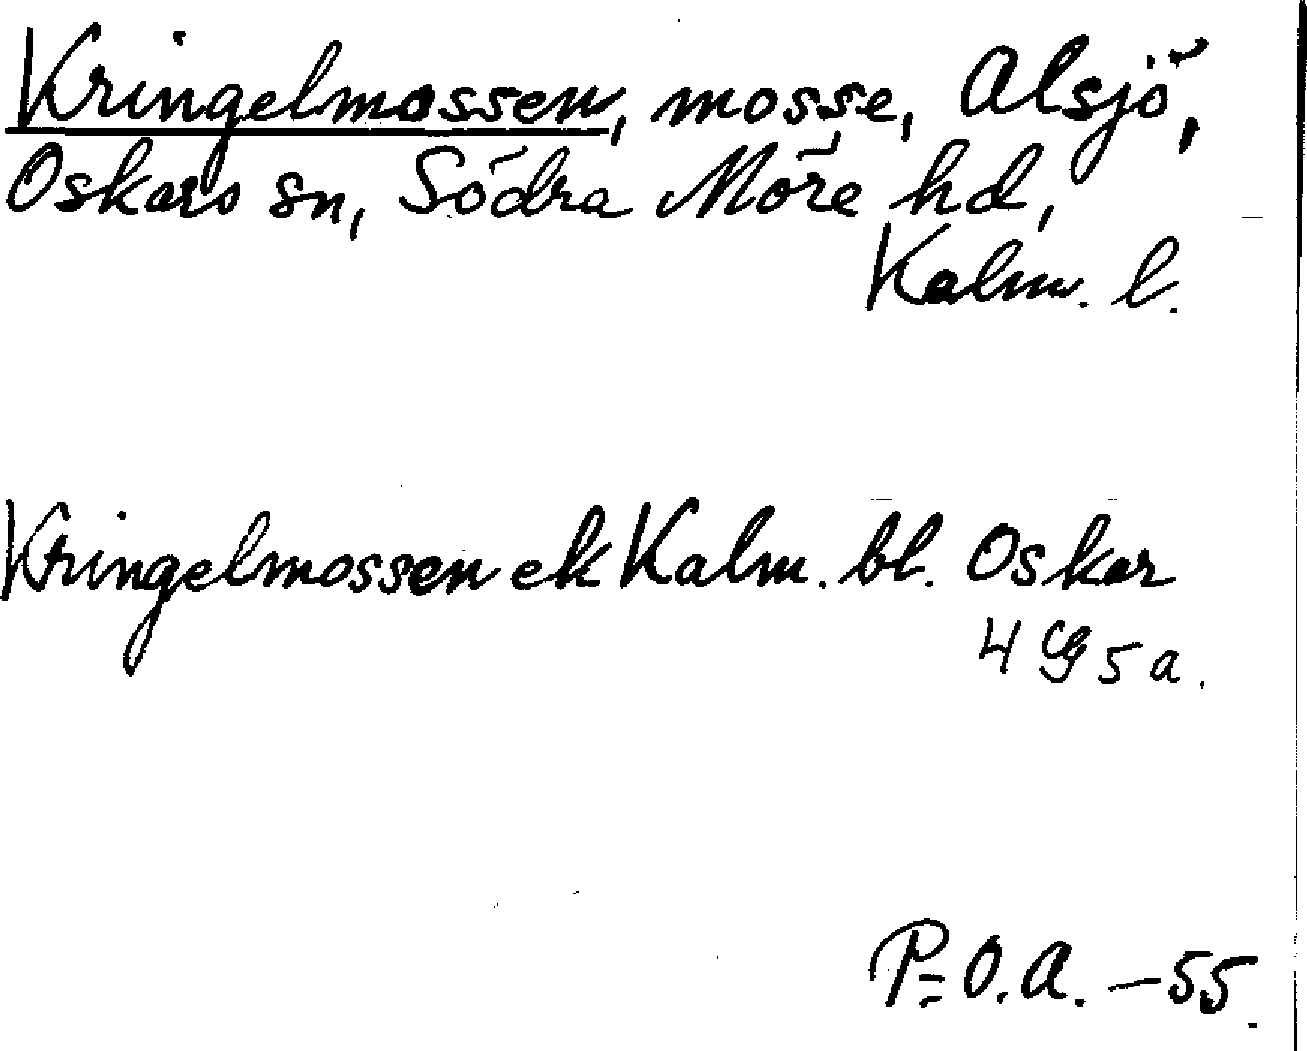 Kringelmossen, mosse, Alsjö,
Oskars sn, Södra Möre hd,
Kalm. l.
Kringelmossen ek Kalm. bl. Oskar
4 G 5 a.
P-O.A. – 55.